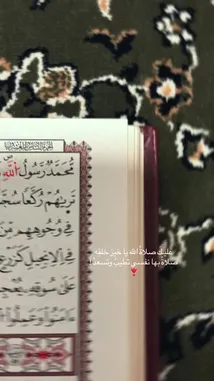 مُّحَمَّدٌ رَّسُولُ ٱللَّهِ
تَرَىٰهُمْ رُكَّعًا سُجَّ
فِي وُجُوهِهِم مِّنْ
فِي ٱلْإِنجِيلِ كَزَرْعٍ
عَلَىٰ سُوقِهِۦ يُعْجِبُ
ءَامَنُوا۟ وَعَمِلُوا۟ ٱ
عليك صلاةُ الله يا خيرَ خلقه
صلاةً بها نفسي تطيبُ وتسعدُ!